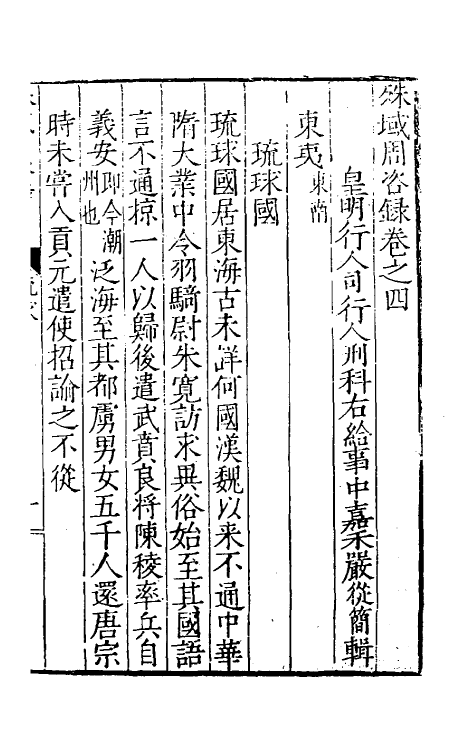 殊域周咨錄卷之四
皇明行人司行人刑科右給事中嘉禾嚴從簡輯
東夷東南
琉球國
琉球國居東海古未詳何國漢魏以来不通中華
隋大業中令羽騎尉朱寬訪求異俗始至其國語
言不通掠一人以歸後遣武賁良將陳稜率兵自
義安即今潮州也泛海至其都虜男女五千人還唐宗
時未嘗入貢元遣使招諭之不從